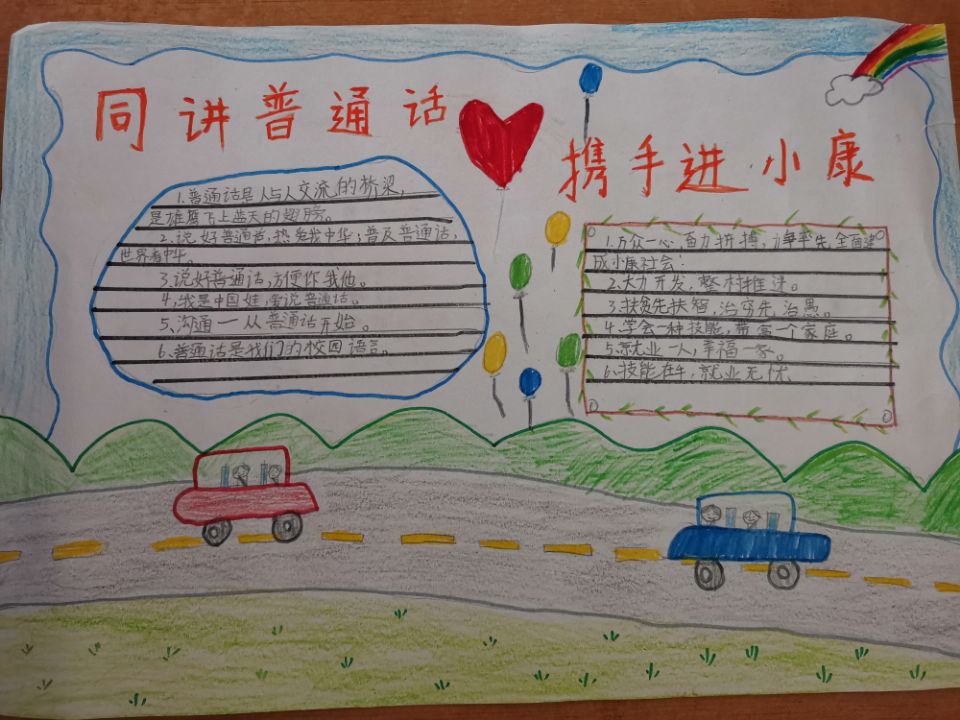 同讲普通话
携手进小康
1.普通话是人与人交流的桥梁,
是雄鹰飞上蓝天的翅膀。
2.说好普通话,热爱我中华;普及普通话,
世界看中华。
3.说好普通话,方便你我他。
4.我是中国娃,爱说普通话。
5.沟通一从普通话开始。
6.普通话是我们的校园语言。
1.万众一心,奋力拼搏,力争率先,全面建
成小康社会!
2.大力开发,整村推进。
3.扶贫先扶智,治穷先治愚。
4.学会一种技能,带富一个家庭。
5.就业一人,幸福一家。
6.技能在手,就业无忧